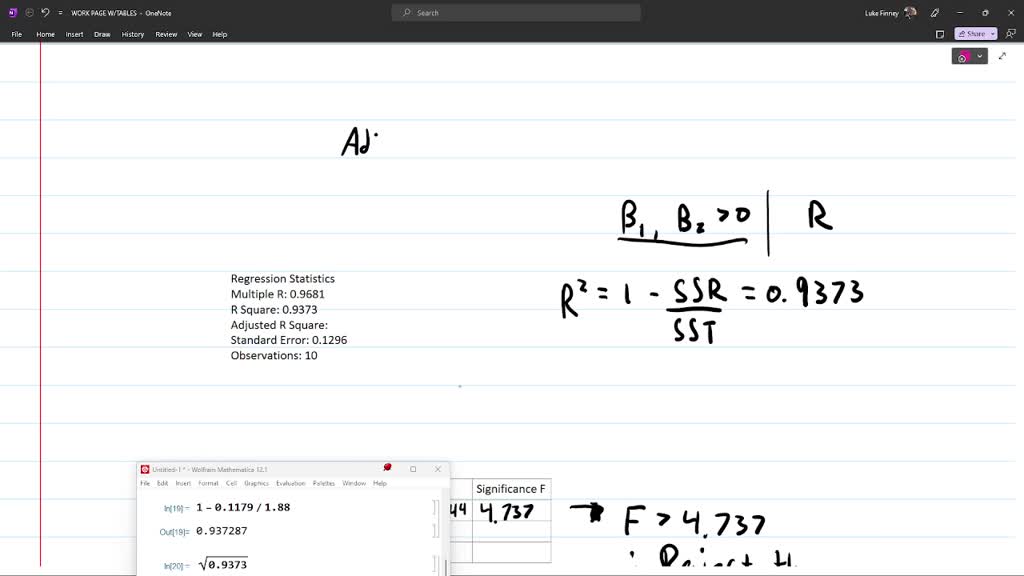 WORK PAGE W/TABLES - OneNote
Search
Luke Finney
File Home Insert Draw History Review View Help
Share
Adj
B₁, B₂ >0 | R
R² = 1 - SSR/SST = 0.9373
Regression Statistics
Multiple R: 0.9681
R Square: 0.9373
Adjusted R Square:
Standard Error: 0.1296
Observations: 10
Untitled-1 * - Wolfram Mathematica 12.1
File Edit Insert Format Cell Graphics Evaluation Palettes Window Help
In[19]= 1 - 0.1179 / 1.88
Out[19]= 0.937287
In[20]= √0.9373
Significance F
44 4.737
→ F > 4.737